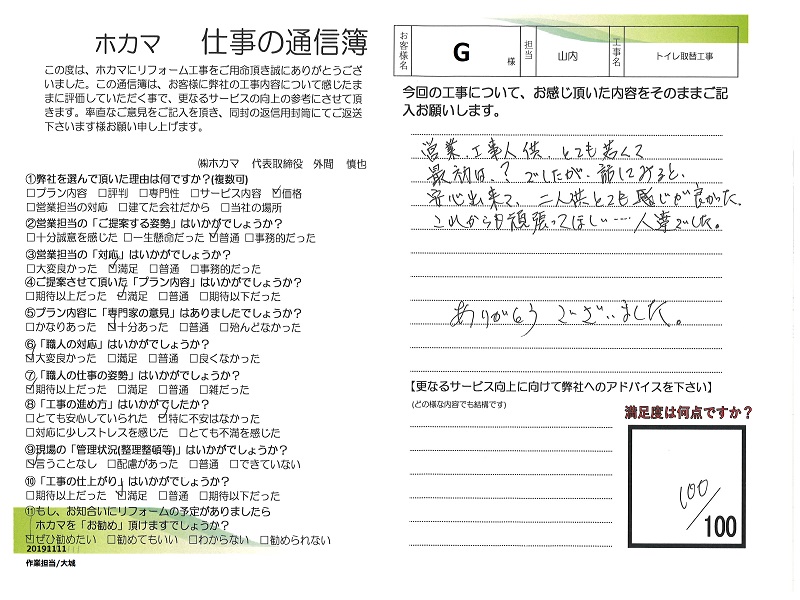 ホカマ 仕事の通信簿
この度は、ホカマにリフォーム工事をご用命頂き誠にありがとうござ
いました。この通信簿は、お客様に弊社の工事内容について感じたま
まに評価していただく事で、更なるサービスの向上の参考にさせて頂
きます。率直なご意見をご記入を頂き、同封の返信用封筒にてご返送
下さいます様お願い申し上げます。
㈱ホカマ 代表取締役 外間 慎也
①弊社を選んで頂いた理由は何ですか?(複数可)
□プラン内容 □評判 □専門性 □サービス内容 ☑価格
□営業担当の対応 □建てた会社だから □当社の場所
②営業担当の「ご提案する姿勢」はいかがでしょうか?
□十分誠意を感じた □一生懸命だった ☑普通 □事務的だった
③営業担当の「対応」はいかがでしょうか?
□大変良かった ☑満足 □普通 □事務的だった
④ご提案させて頂いた「プラン内容」はいかがでしょうか?
□期待以上だった ☑満足 □普通 □期待以下だった
⑤プラン内容に「専門家の意見」はありましたでしょうか?
□かなりあった ☑十分あった □普通 □殆んどなかった
⑥「職人の対応」はいかがでしょうか?
☑大変良かった □満足 □普通 □良くなかった
⑦「職人の仕事の姿勢」はいかがでしょうか?
☑期待以上だった □満足 □普通 □雑だった
⑧「工事の進め方」はいかがでしたか?
□とても安心していられた ☑特に不安はなかった
□対応に少しストレスを感じた □とても不満を感じた
⑨現場の「管理状況(整理整頓等)」はいかがでしょうか?
☑言うことなし □配慮があった □普通 □できていない
⑩「工事の仕上がり」はいかがでしょうか?
□期待以上だった ☑満足 □普通 □期待以下だった
⑪もし、お知合いにリフォームの予定がありましたら
ホカマを「お勧め」頂けますでしょうか?
☑ぜひ勧めたい □勧めてもいい □わからない □勧められない
20191111
作業担当/大城
お客様名 G 様 担当 山内 工事名 トイレ取替工事
今回の工事について、お感じ頂いた内容をそのままご記
入お願いします。
営業、工事人供、とても若くて
最初は、?でしたが、話してみると、
安心出来て、二人供とても感じが良かった。
これからも頑張ってほしい……人達でした。
ありがとう ございました。
【更なるサービス向上に向けて弊社へのアドバイスを下さい】
(どの様な内容でも結構です)
満足度は何点ですか?
100/100